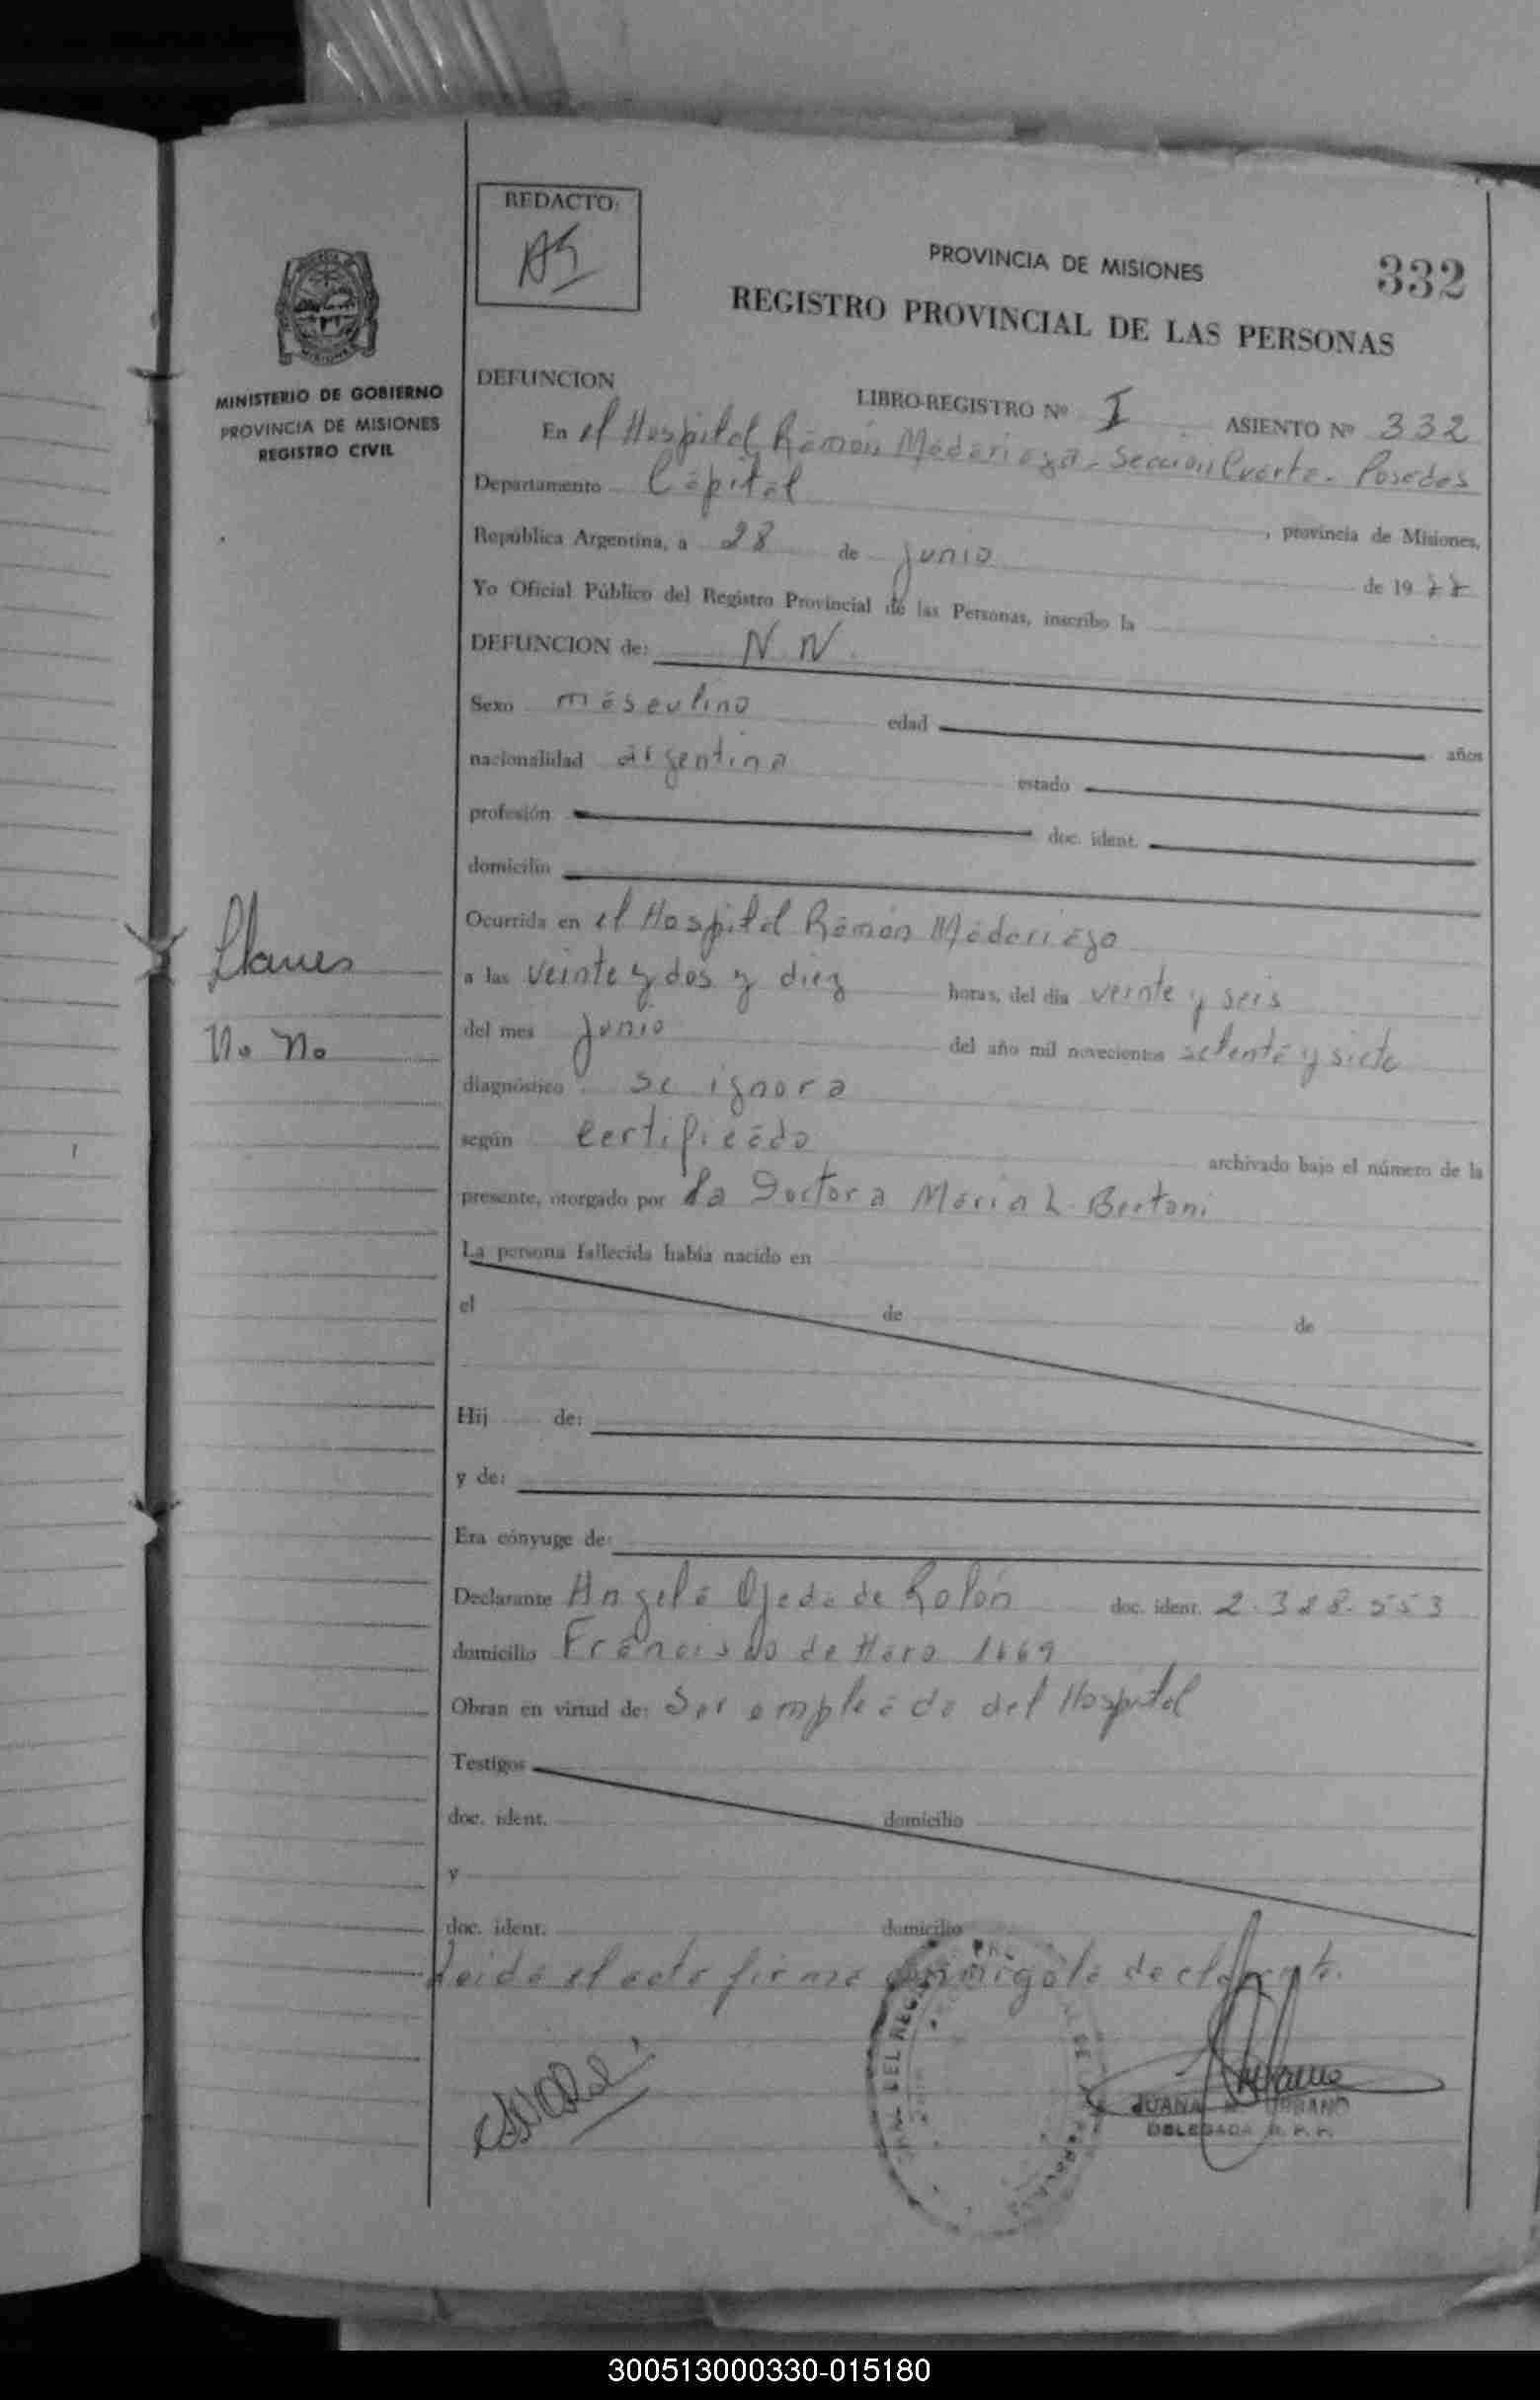 REDACTO:
PROVINCIA DE MISIONES
332
REGISTRO PROVINCIAL DE LAS PERSONAS
MINISTERIO DE GOBIERNO
PROVINCIA DE MISIONES
REGISTRO CIVIL
DEFUNCION
LIBRO-REGISTRO Nº I ASIENTO Nº 332
En el Hospital Ramón Madariaga - Sección Cuarta - Posadas
Departamento Capital, provincia de Misiones,
República Argentina, a 28 de junio de 1977
Yo Oficial Público del Registro Provincial de las Personas, inscribo la
DEFUNCION de: N N
Sexo masculino edad años
nacionalidad argentina estado
profesión doc. ident.
domicilio
Ocurrida en el Hospital Ramón Madariaga
Llanes
a las veinte y dos y diez horas, del día veinte y seis
N. N.
del mes junio del año mil novecientos setenta y siete
diagnóstico se ignora
según certificado archivado bajo el número de la
presente, otorgado por la Doctora María L. Bertoni
La persona fallecida había nacido en
el de de
Hij de:
y de:
Era cónyuge de:
Declarante Angela Ojeda de Rolón doc. ident. 2.328.553
domicilio Francisco de Haro 1669
Obran en virtud de: Ser empleada del Hospital
Testigos
doc. ident. domicilio
y
doc. ident. domicilio
Leida el acta firma conmigo la declarante.
JUANA URBANO
DELEGADA R. P. P.
300513000330-015180